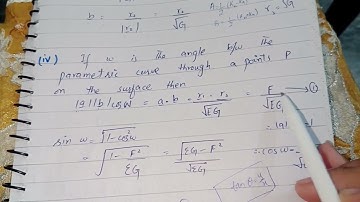 b = r₂ / |r₂| = r₂ / √G
(iv) If ω is the angle b/w the
parametric curve through a points P
on the surface then
|a||b|cosω = a.b = r₁.r₂ / √EG = F / √EG → ①
sin ω = √1-cos²ω
= √1 - F² / EG = √EG - F² / √EG
∴ cos ω =
tanθ =